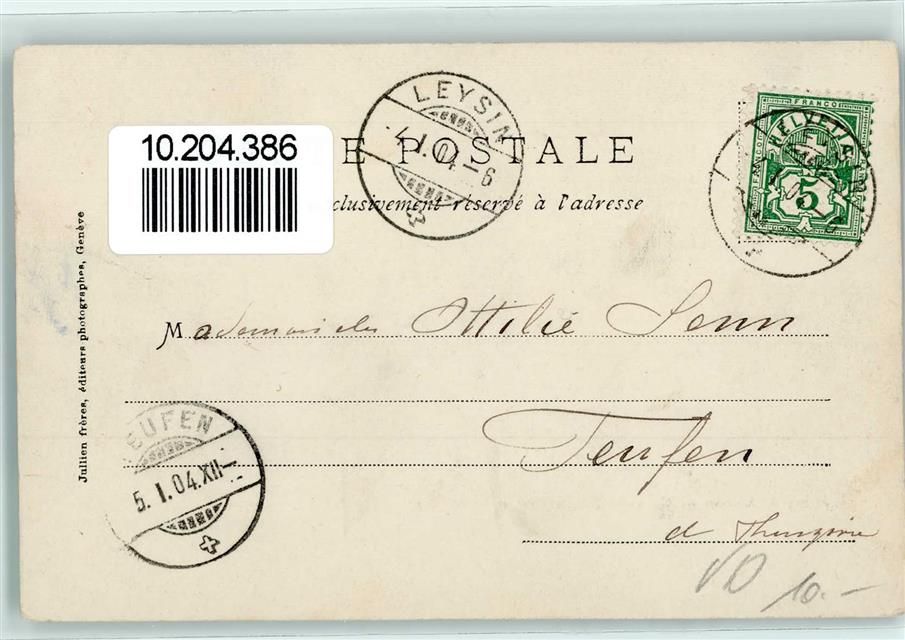 10.204.386
LEYSIN
E POSTALE
FRANCO
HELVETIA
5
clusivement réservé à l'adresse
Jullien frères, éditeurs photographes, Genève
Mademoiselle Ottilie Senn
Teufen
EUFEN
5. I. 04. XII
VD 10.-